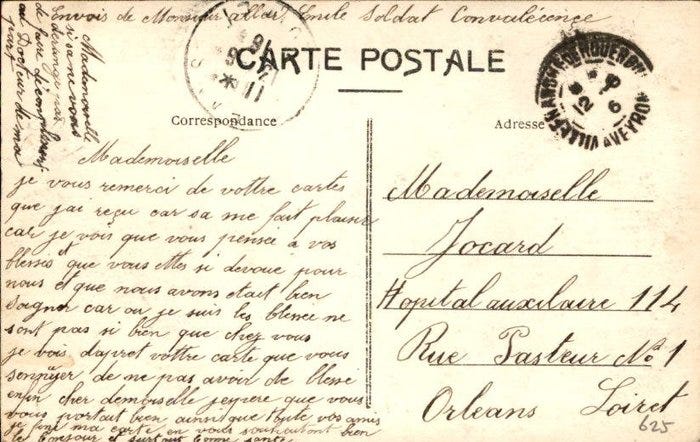 Envois de Monsieur Allar, Emile Soldat Convalécence
CARTE POSTALE
Correspondance
Adresse
VILLEFRANCHE DE ROUERGUE
AVEYRON
12
6
11
Mademoiselle
si sa ne vous
dérange pas
de faire
au Docteur de ma
part
Mademoiselle
je vous remerci de vottre cartes
que j'ai reçu car sa me fait plaisir
car je vois que vous pensée a vos
blessés que vous ettes si devoue pour
nous et que nous avons etait bien
soigner car ou je suis les blessée ne
sont pas si bien que chez vous
je vois d'apret vottre carte que vous
de ne pas avoir de blessé
enfin cher demoiselle j'espere que vous
vous portait bien ainsi que toute vos amis
je fini ma carte en vous souhaitont bien
le bonsour et surtout bonne santé
Mademoiselle
Jocard
Hopital auxilaire 114
Rue Pasteur No 1
Orleans Loiret
625